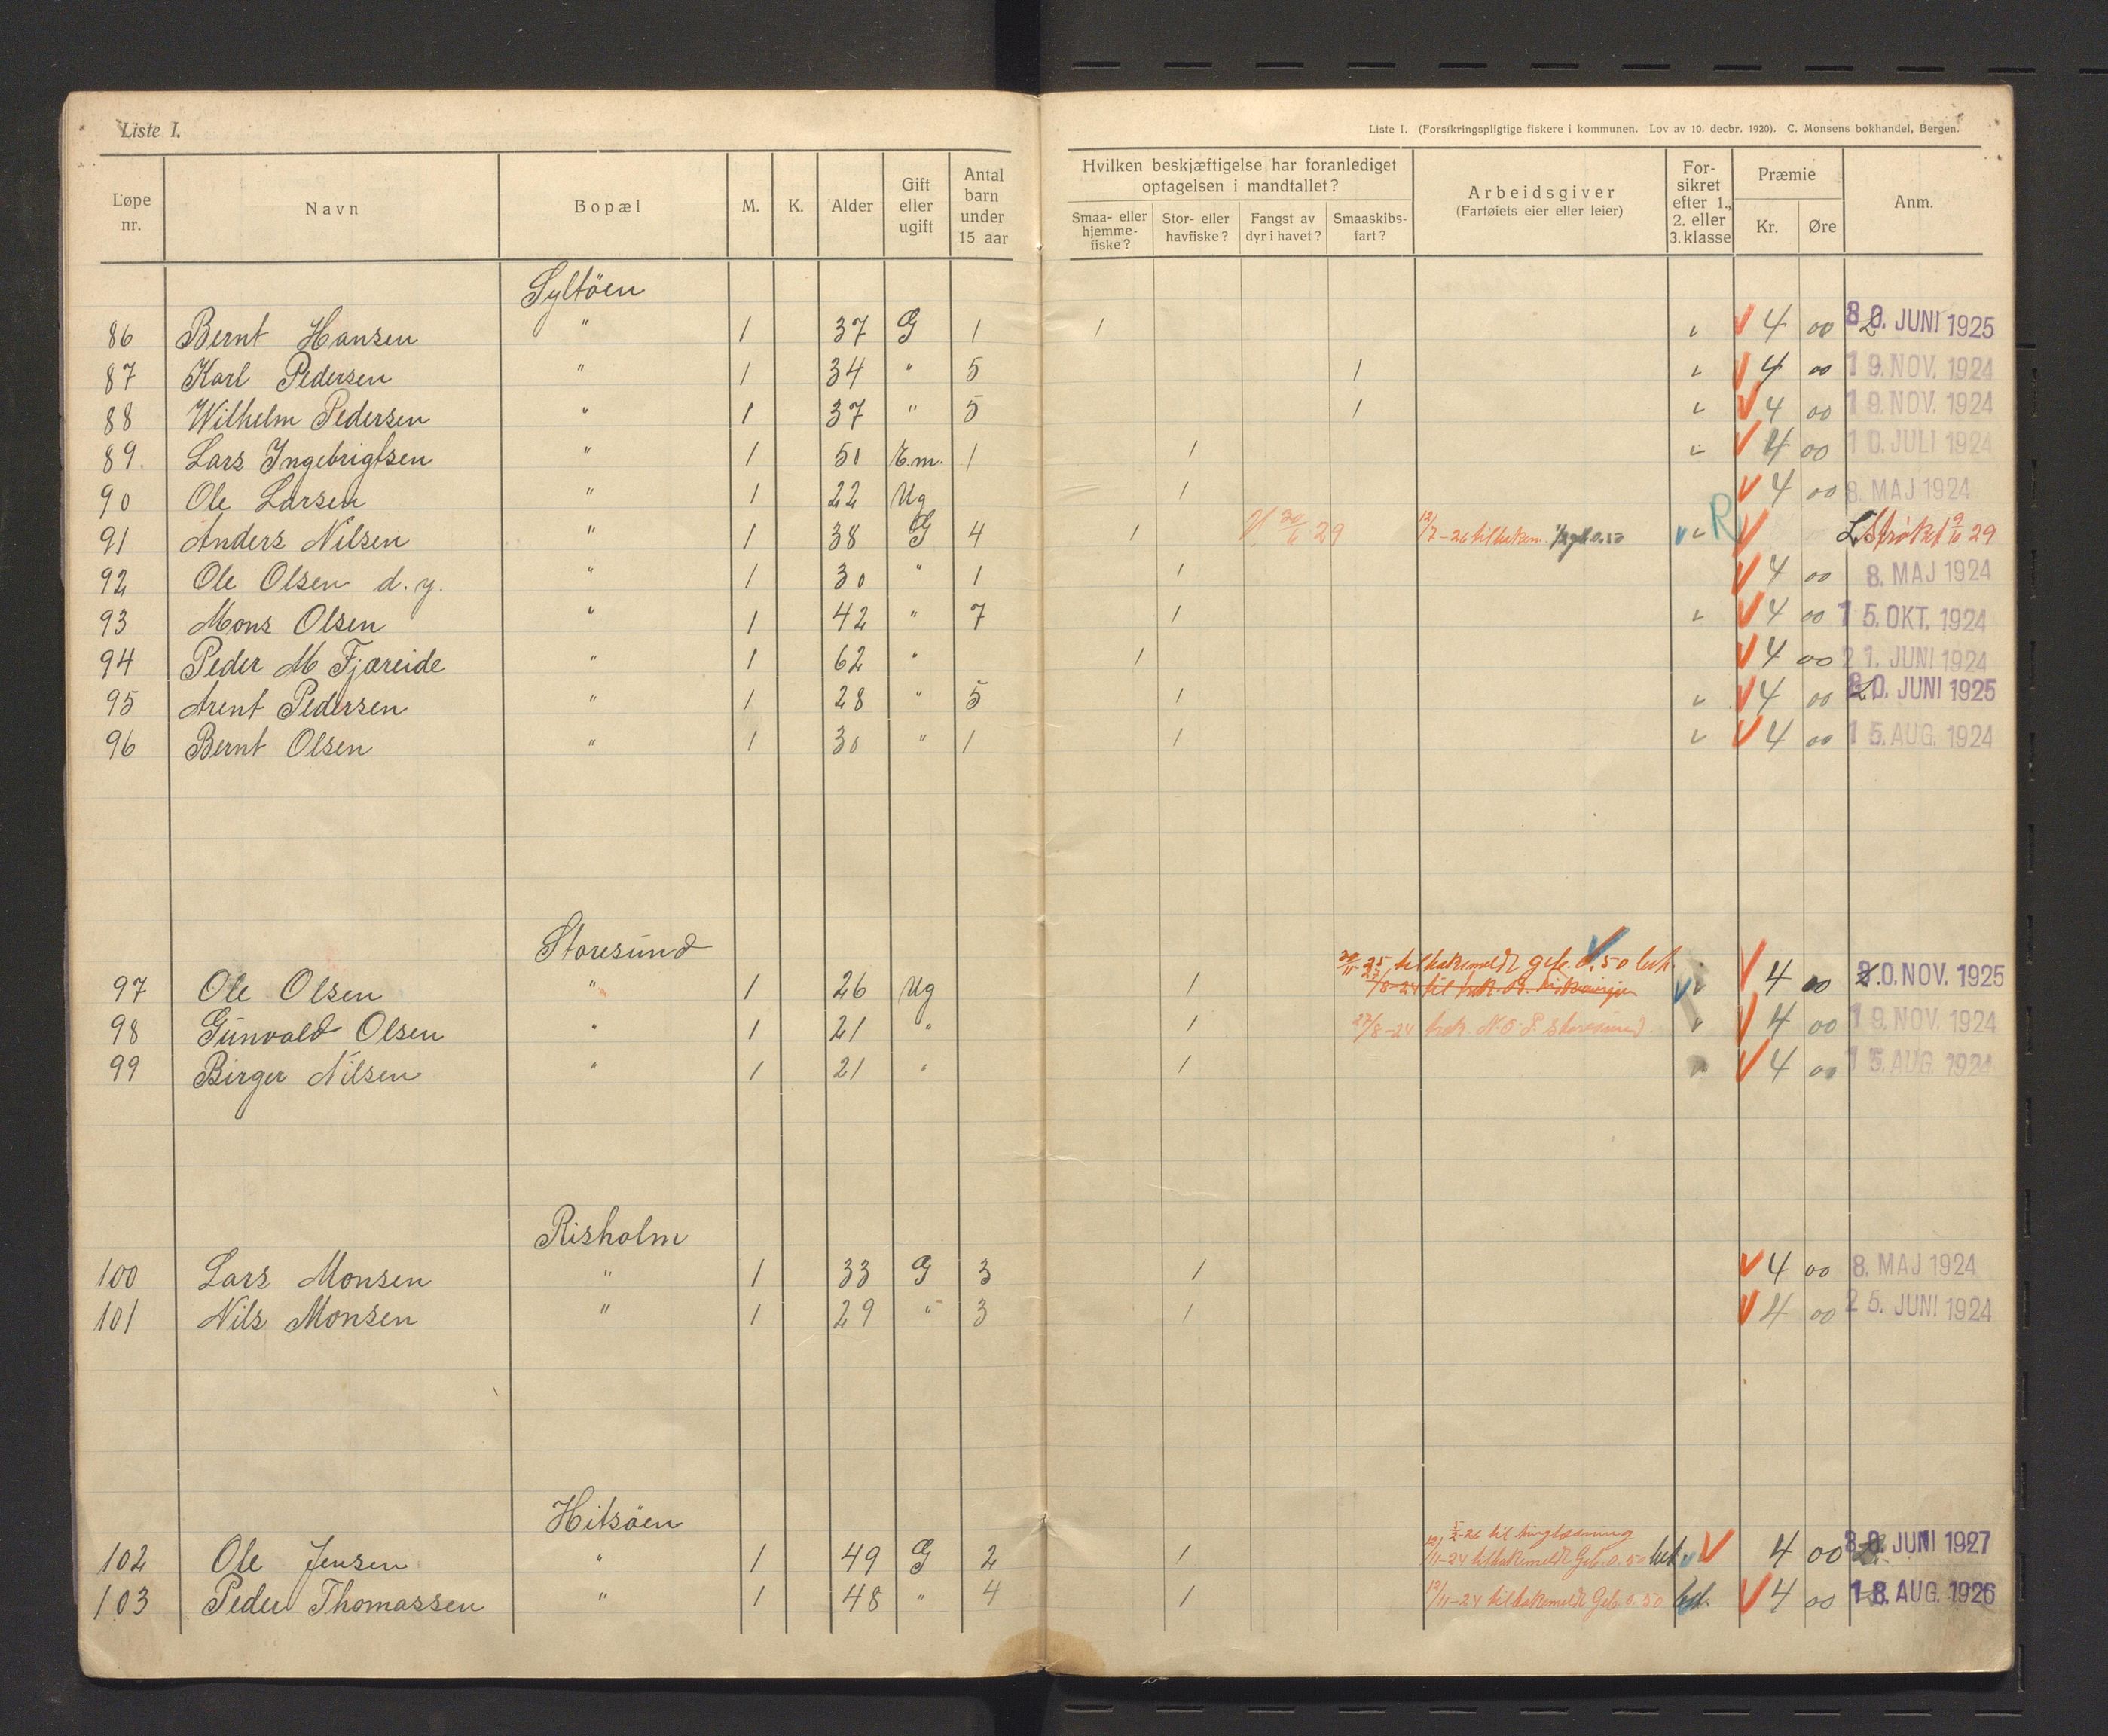 Liste I.
Liste I. (Forsikringspligtige fiskere i kommunen. Lov av 10. decbr. 1920). C. Monsens bokhandel, Bergen.
Løpe nr. | Navn | Bopæl | M. | K. | Alder | Gift eller ugift | Antal barn under 15 aar | Hvilken beskjæftigelse har foranlediget optagelsen i mandtallet? | Smaa- eller hjemmefiske? | Stor- eller havfiske? | Fangst av dyr i havet? | Smaaskibsfart? | Arbeidsgiver (Fartøiets eier eller leier) | Forsikret efter 1., 2. eller 3. klasse | Præmie | Kr. | Øre | Anm.
Syltöen
86 Bernt Hansen " 1 37 G 1 1 4 00 30. JUNI 1925
87 Karl Pedersen " 1 34 " 5 1 4 00 19. NOV. 1924
88 Wilhelm Pedersen " 1 37 " 5 1 4 00 19. NOV. 1924
89. Lars Ingebrigtsen " 1 50 E.m. 1 1 4 00 10. JULI 1924
90 Ole Larsen " 1 22 Ug 1 4 00 8. MAJ 1924
91 Anders Nilsen " 1 38 G 4 1 30/6 29 12/7-26 R Strøket 29
92 Ole Olsen d. y. " 1 30 " 1 1 4 00 8. MAJ 1924
93 Mons Olsen " 1 42 " 7 1 4 00 15. OKT. 1924
94 Peder M Fjæreide " 1 62 " 1 4 00 21. JUNI 1924
95 Arent Pedersen " 1 28 " 5 1 4 00 30. JUNI 1925
96 Bernt Olsen " 1 30 " 1 1 4 00 15. AUG. 1924
Storesund
30/11 25 tilbakemeldt geb. 0,50 bet.
97 Ole Olsen " 1 26 Ug 1 27/8-24 til 4 00 30. NOV. 1925
98 Gunvald Olsen " 1 21 " 1 27/8-24 bet. N. O. P. Storesund. 4 00 19. NOV. 1924
99 Birger Nilsen " 1 21 " 1 4 00 15. AUG. 1924
Risholm
100 Lars Monsen " 1 33 G 3 1 4 00 8. MAJ 1924
101 Nils Monsen " 1 29 " 3 1 4 00 25. JUNI 1924
Hitsöen
5/2-26 til tinglæsning
102 Ole Jensen " 1 49 G 2 1 12/11-24 tilbakemeldt Geb. 0.50 bet 4 00 30. JUNI 1927
103 Peder Thomassen " 1 48 " 4 1 12/11-24 tilbakemeldt Geb. 0.50 bet. 4 00 18. AUG. 1926